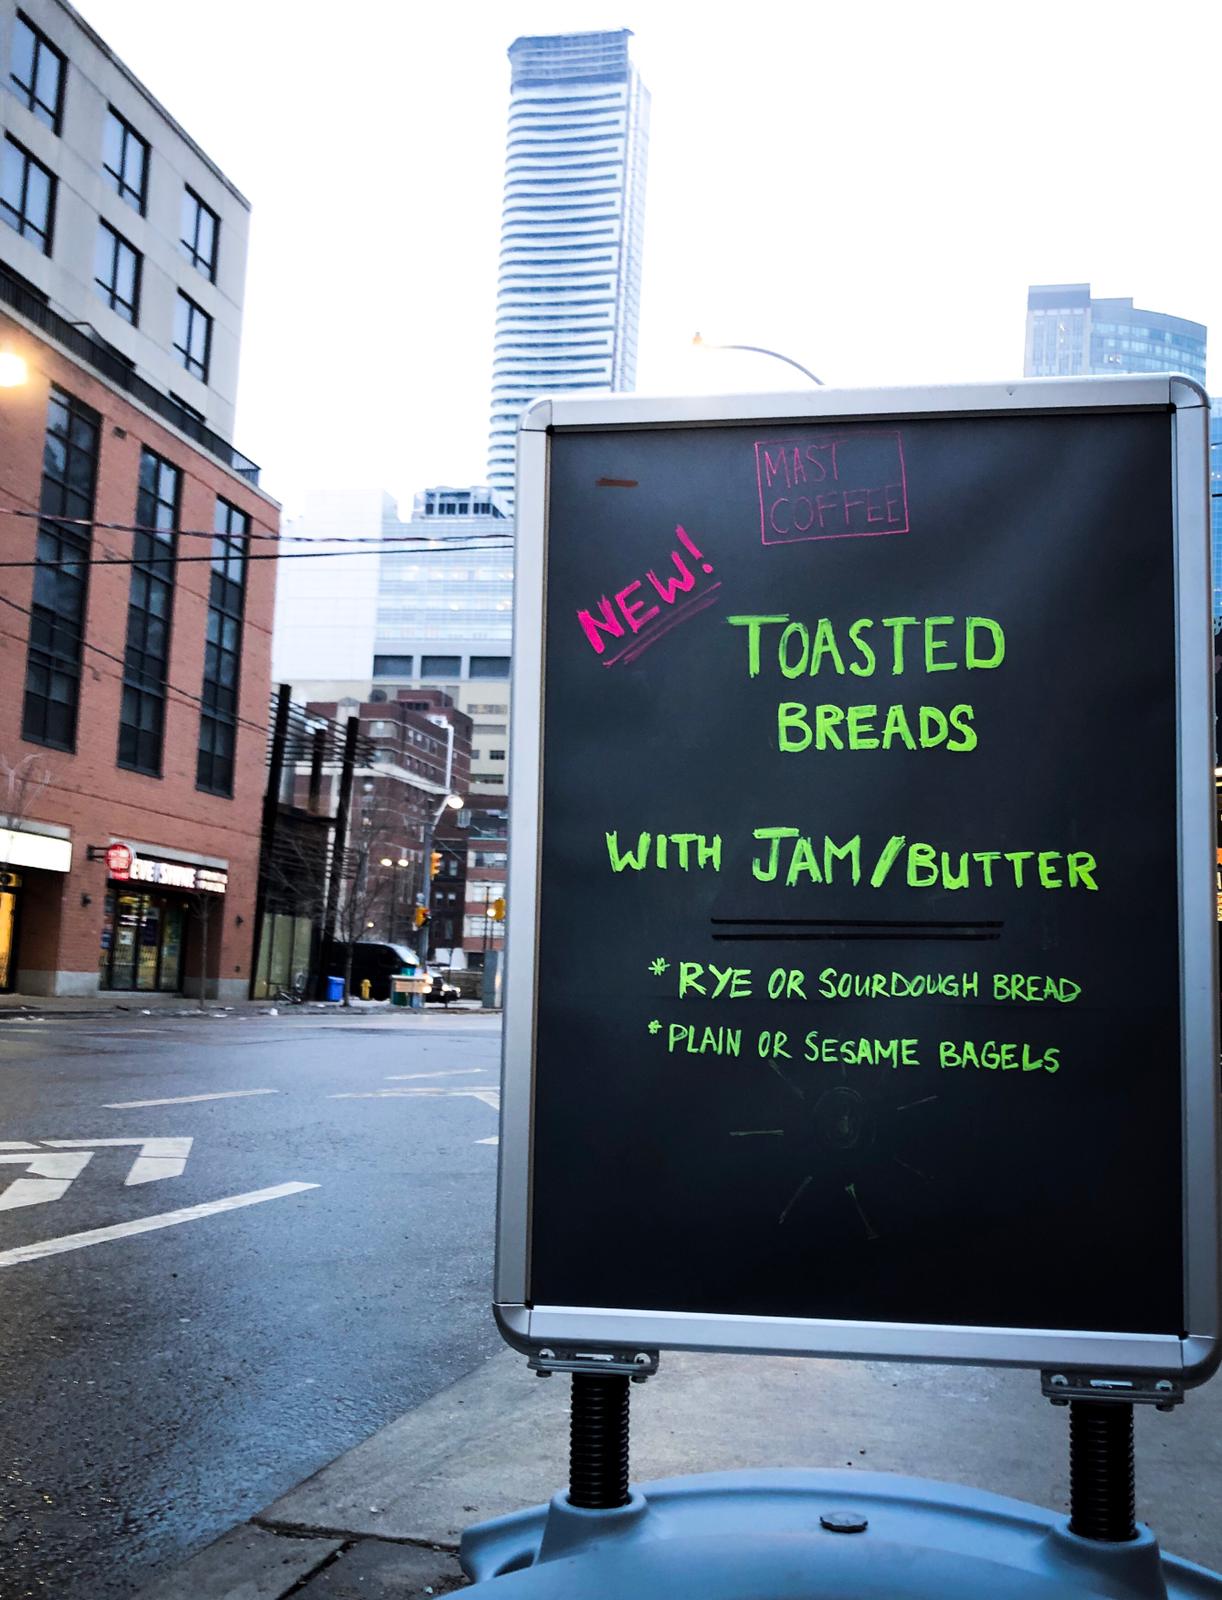 MAST
COFFEE
NEW!
TOASTED
BREADS
WITH JAM/BUTTER
* RYE OR SOURDOUGH BREAD
* PLAIN OR SESAME BAGELS